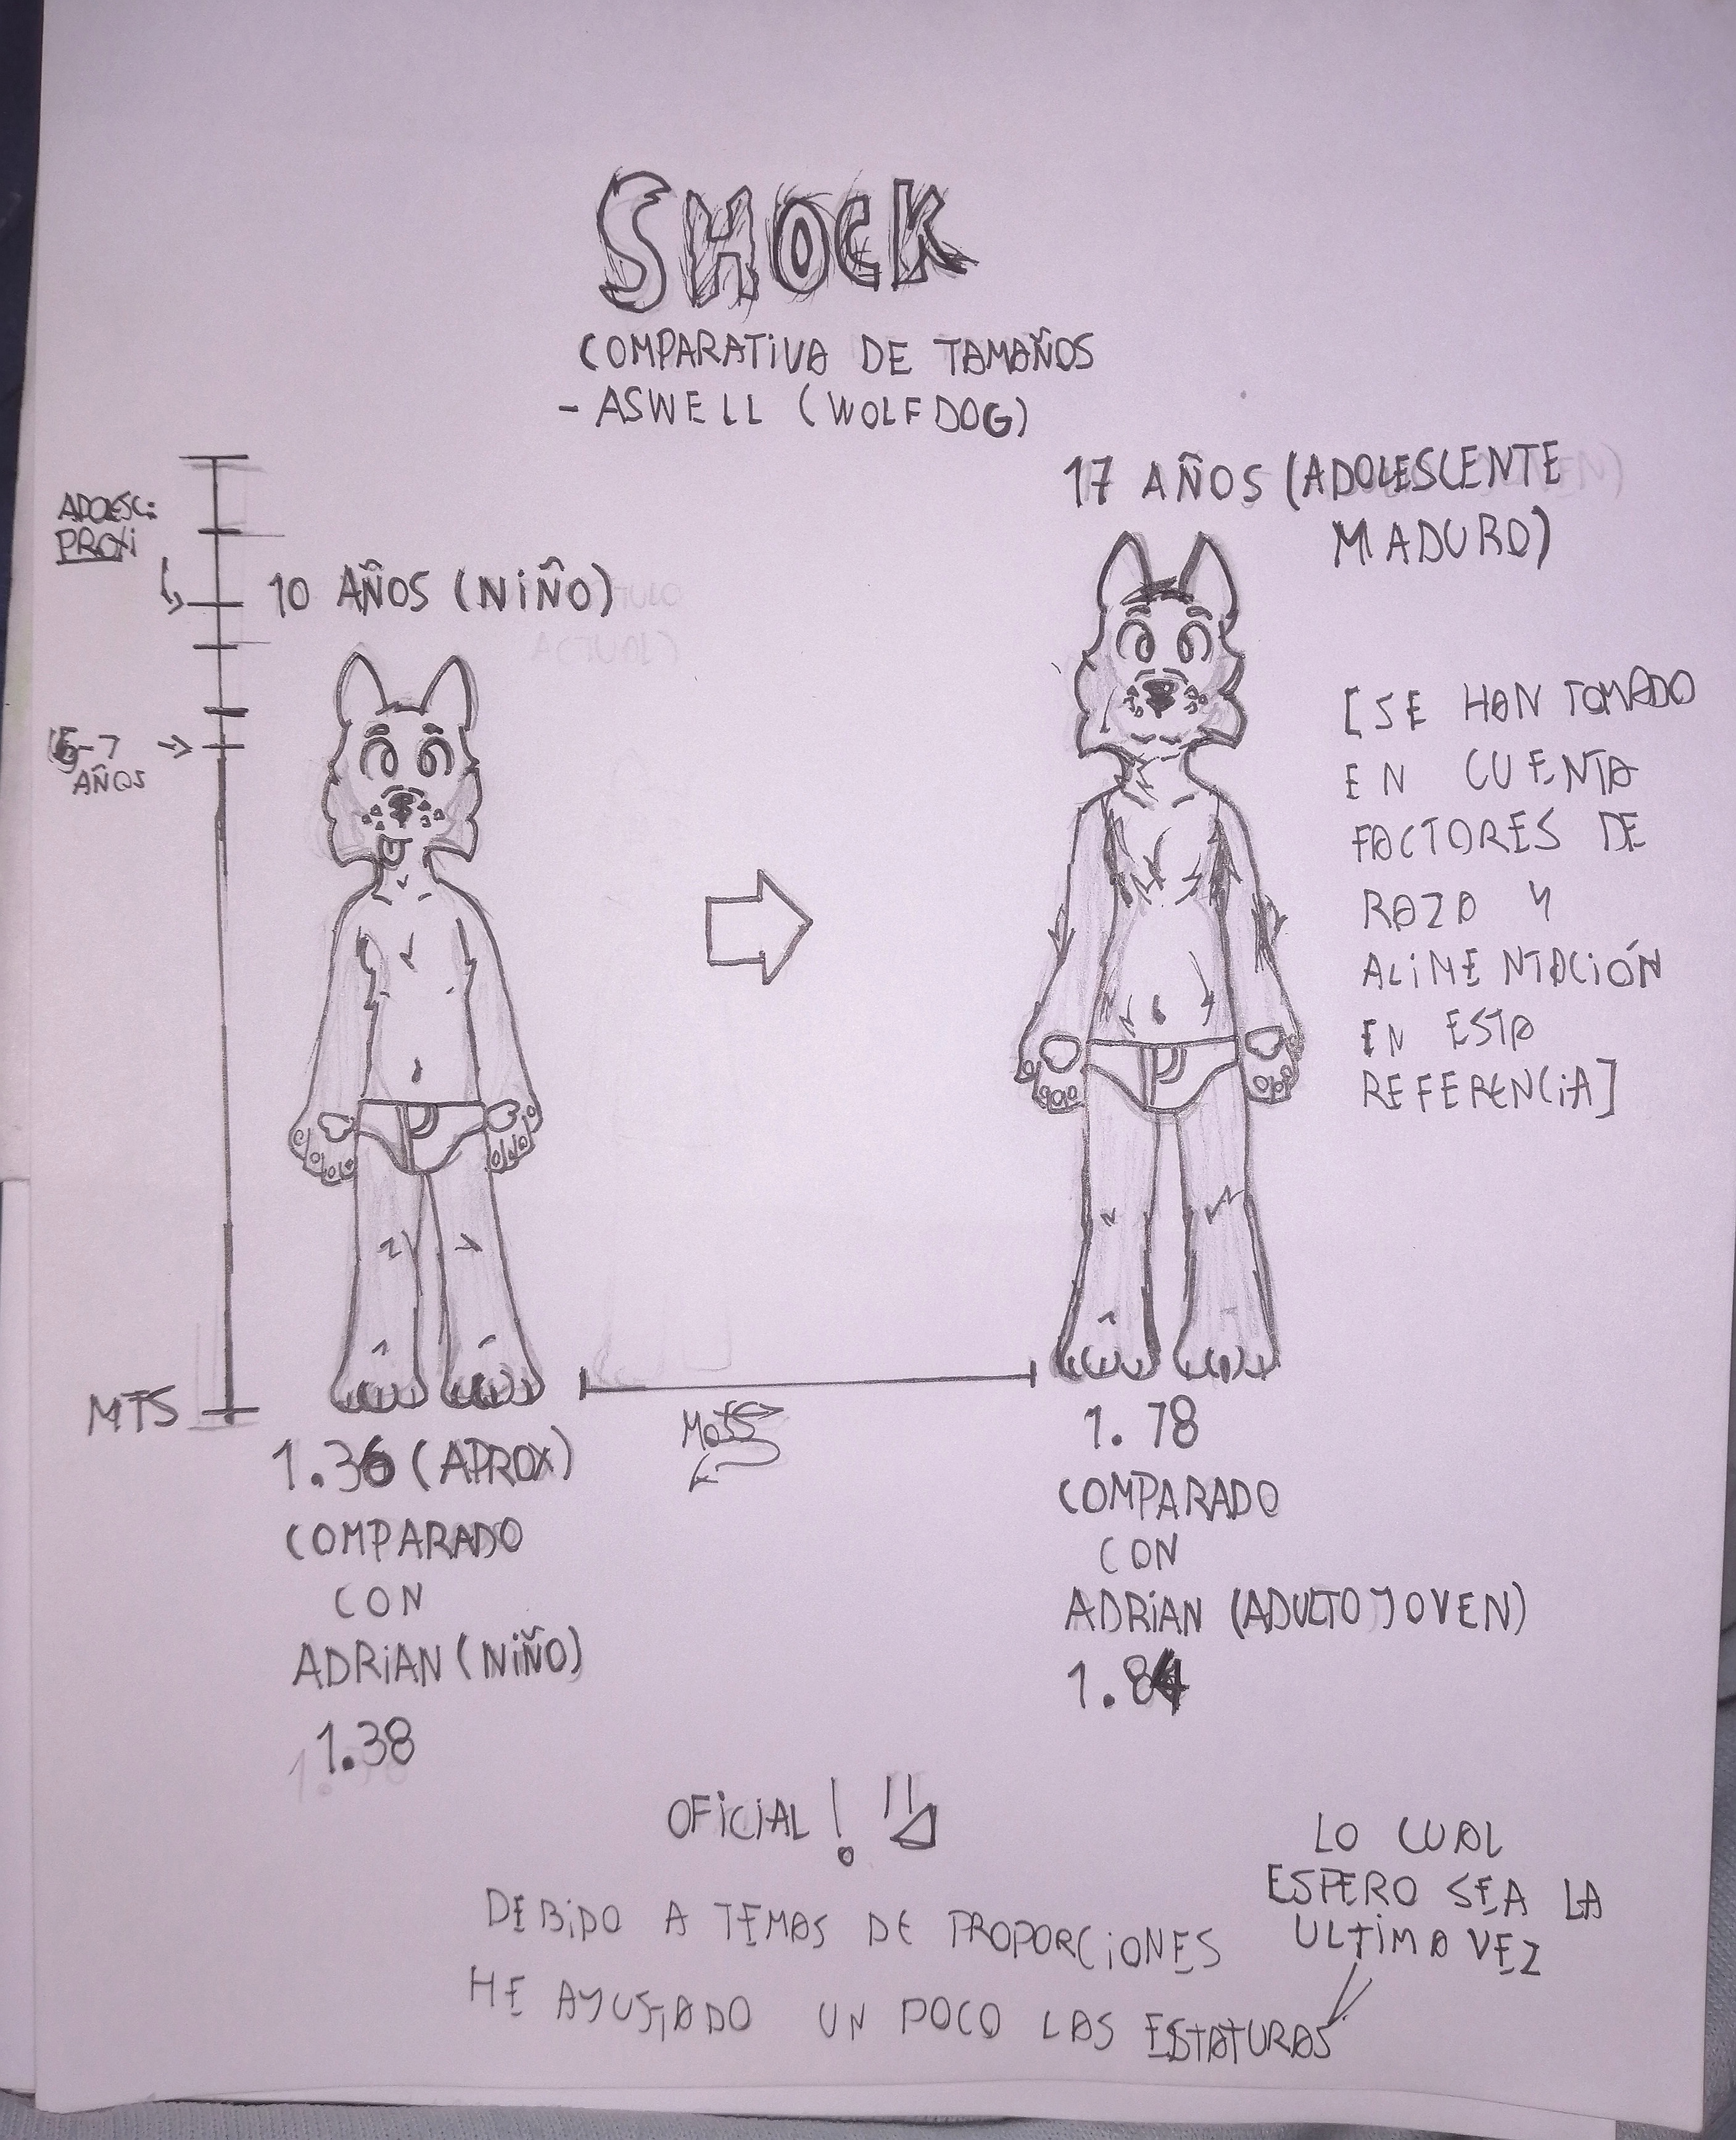 SHOCK
COMPARATIVA DE TAMAÑOS
- ASWELL (WOLFDOG)
17 AÑOS (ADOLESCENTE
MADURO)
ADOLESC:
PROXI
10 AÑOS (NIÑO)
ACTUAL)
6-7
AÑOS
[SE HAN TOMADO
EN CUENTA
FACTORES DE
RAZA Y
ALIMENTACIÓN
EN ESTA
REFERENCIA]
MTS
1.36 (APROX)
COMPARADO
CON
ADRIAN (NIÑO)
1.38
1.78
COMPARADO
CON
ADRIAN (ADULTO JOVEN)
1.84
OFICIAL!
DEBIDO A TEMAS DE PROPORCIONES
HE AJUSTADO UN POCO LAS ESTATURAS
LO CUAL
ESPERO SEA LA
ULTIMA VEZ